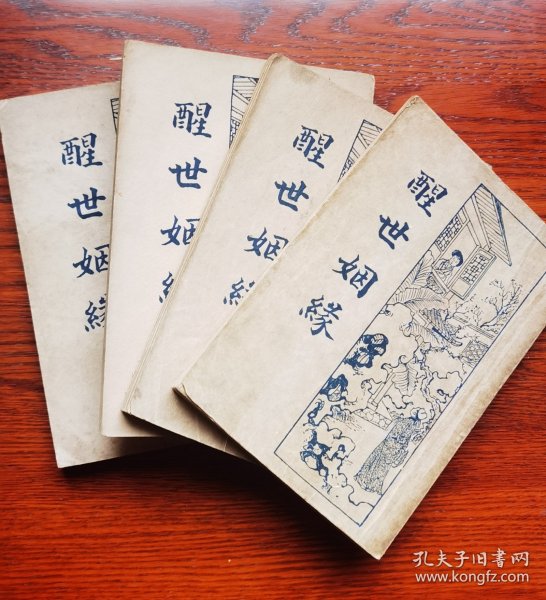 醒世姻緣
醒世姻緣
醒世姻緣
醒世姻緣
孔夫子旧书网
www.kongfz.com